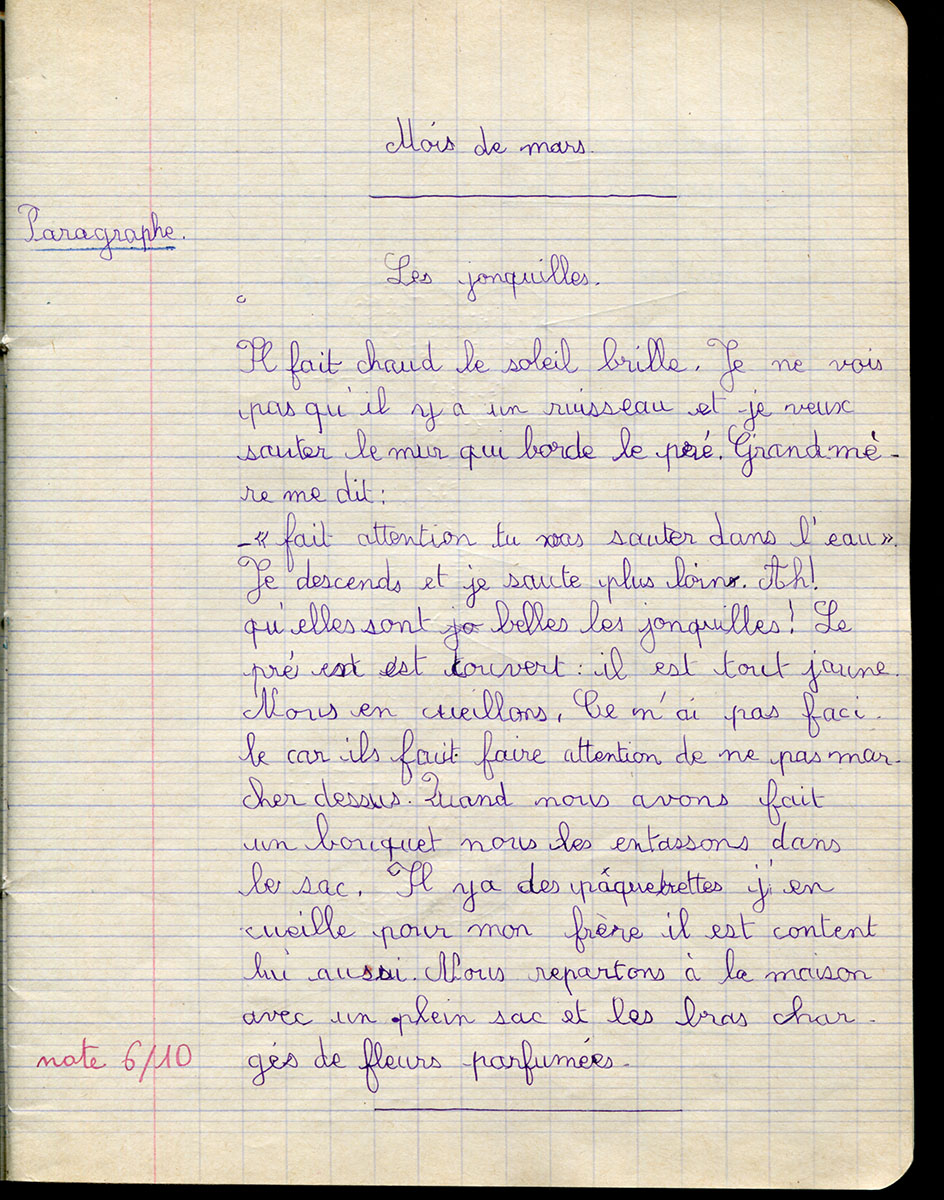 Mois de mars.
Paragraphe.
Les jonquilles.
Il fait chaud le soleil brille. Je ne vois
pas qu'il y a un ruisseau et je veux
sauter le mur qui borde le pré. Grand mè-
re me dit :
-« fait attention tu vas sauter dans l'eau ».
Je descends et je saute plus loin. Ah!
qu'elles sont belles les jonquilles! Le
pré est couvert : il est tout jaune.
Nous en cueillons. Ce n'ai pas faci-
le car ils faut faire attention de ne pas mar-
cher dessus. Quand nous avons fait
un bouquet nous les entassons dans
le sac. Il ya des pâquerettes j'en
cueille pour mon frère il est content
lui aussi. Nous repartons à la maison
avec un plein sac et les bras char-
gés de fleurs parfumées.
note 6/10